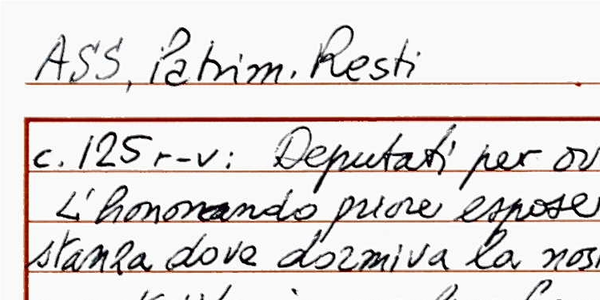 ASS, Patrim. Resti
c. 125 r-v: Deputati per ov
L'honorando priore espose
stanza dove dormiva la nos